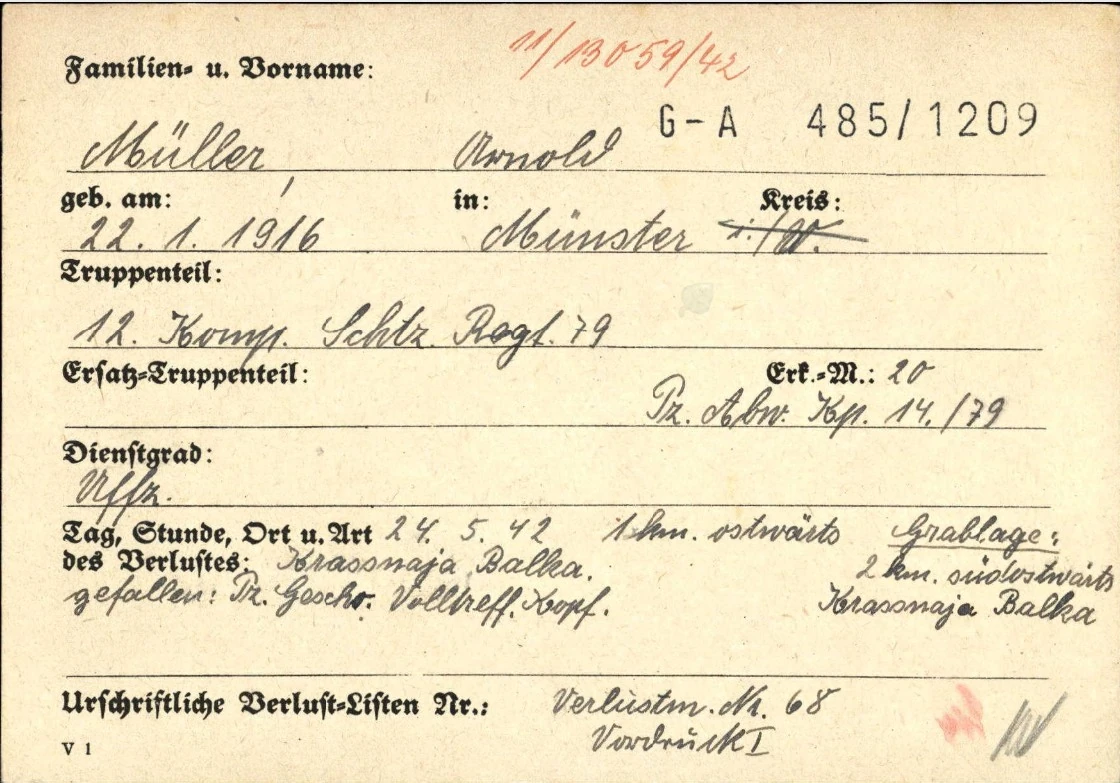 11/13059/42
Familien- u. Vorname:
G-A 485/1209
Müller, Arnold
geb. am: in: Kreis:
22. 1. 1916 Münster i./W.
Truppenteil:
12. Komp. Schtz. Regt. 79
Ersatz-Truppenteil: Erk.-M.: 20
Pz. Abw. Kp. 14./79
Dienstgrad:
Uffz.
Tag, Stunde, Ort u. Art 24. 5. 42 1 km. ostwärts Grablage:
des Verlustes: Krassnaja Balka. 2 km. südostwärts
gefallen: Pz. Gescho. Volltreff. Kopf. Krassnaja Balka
Urschriftliche Verlust-Listen Nr.: Verlustm. Nr. 68
Vordruck I
V 1